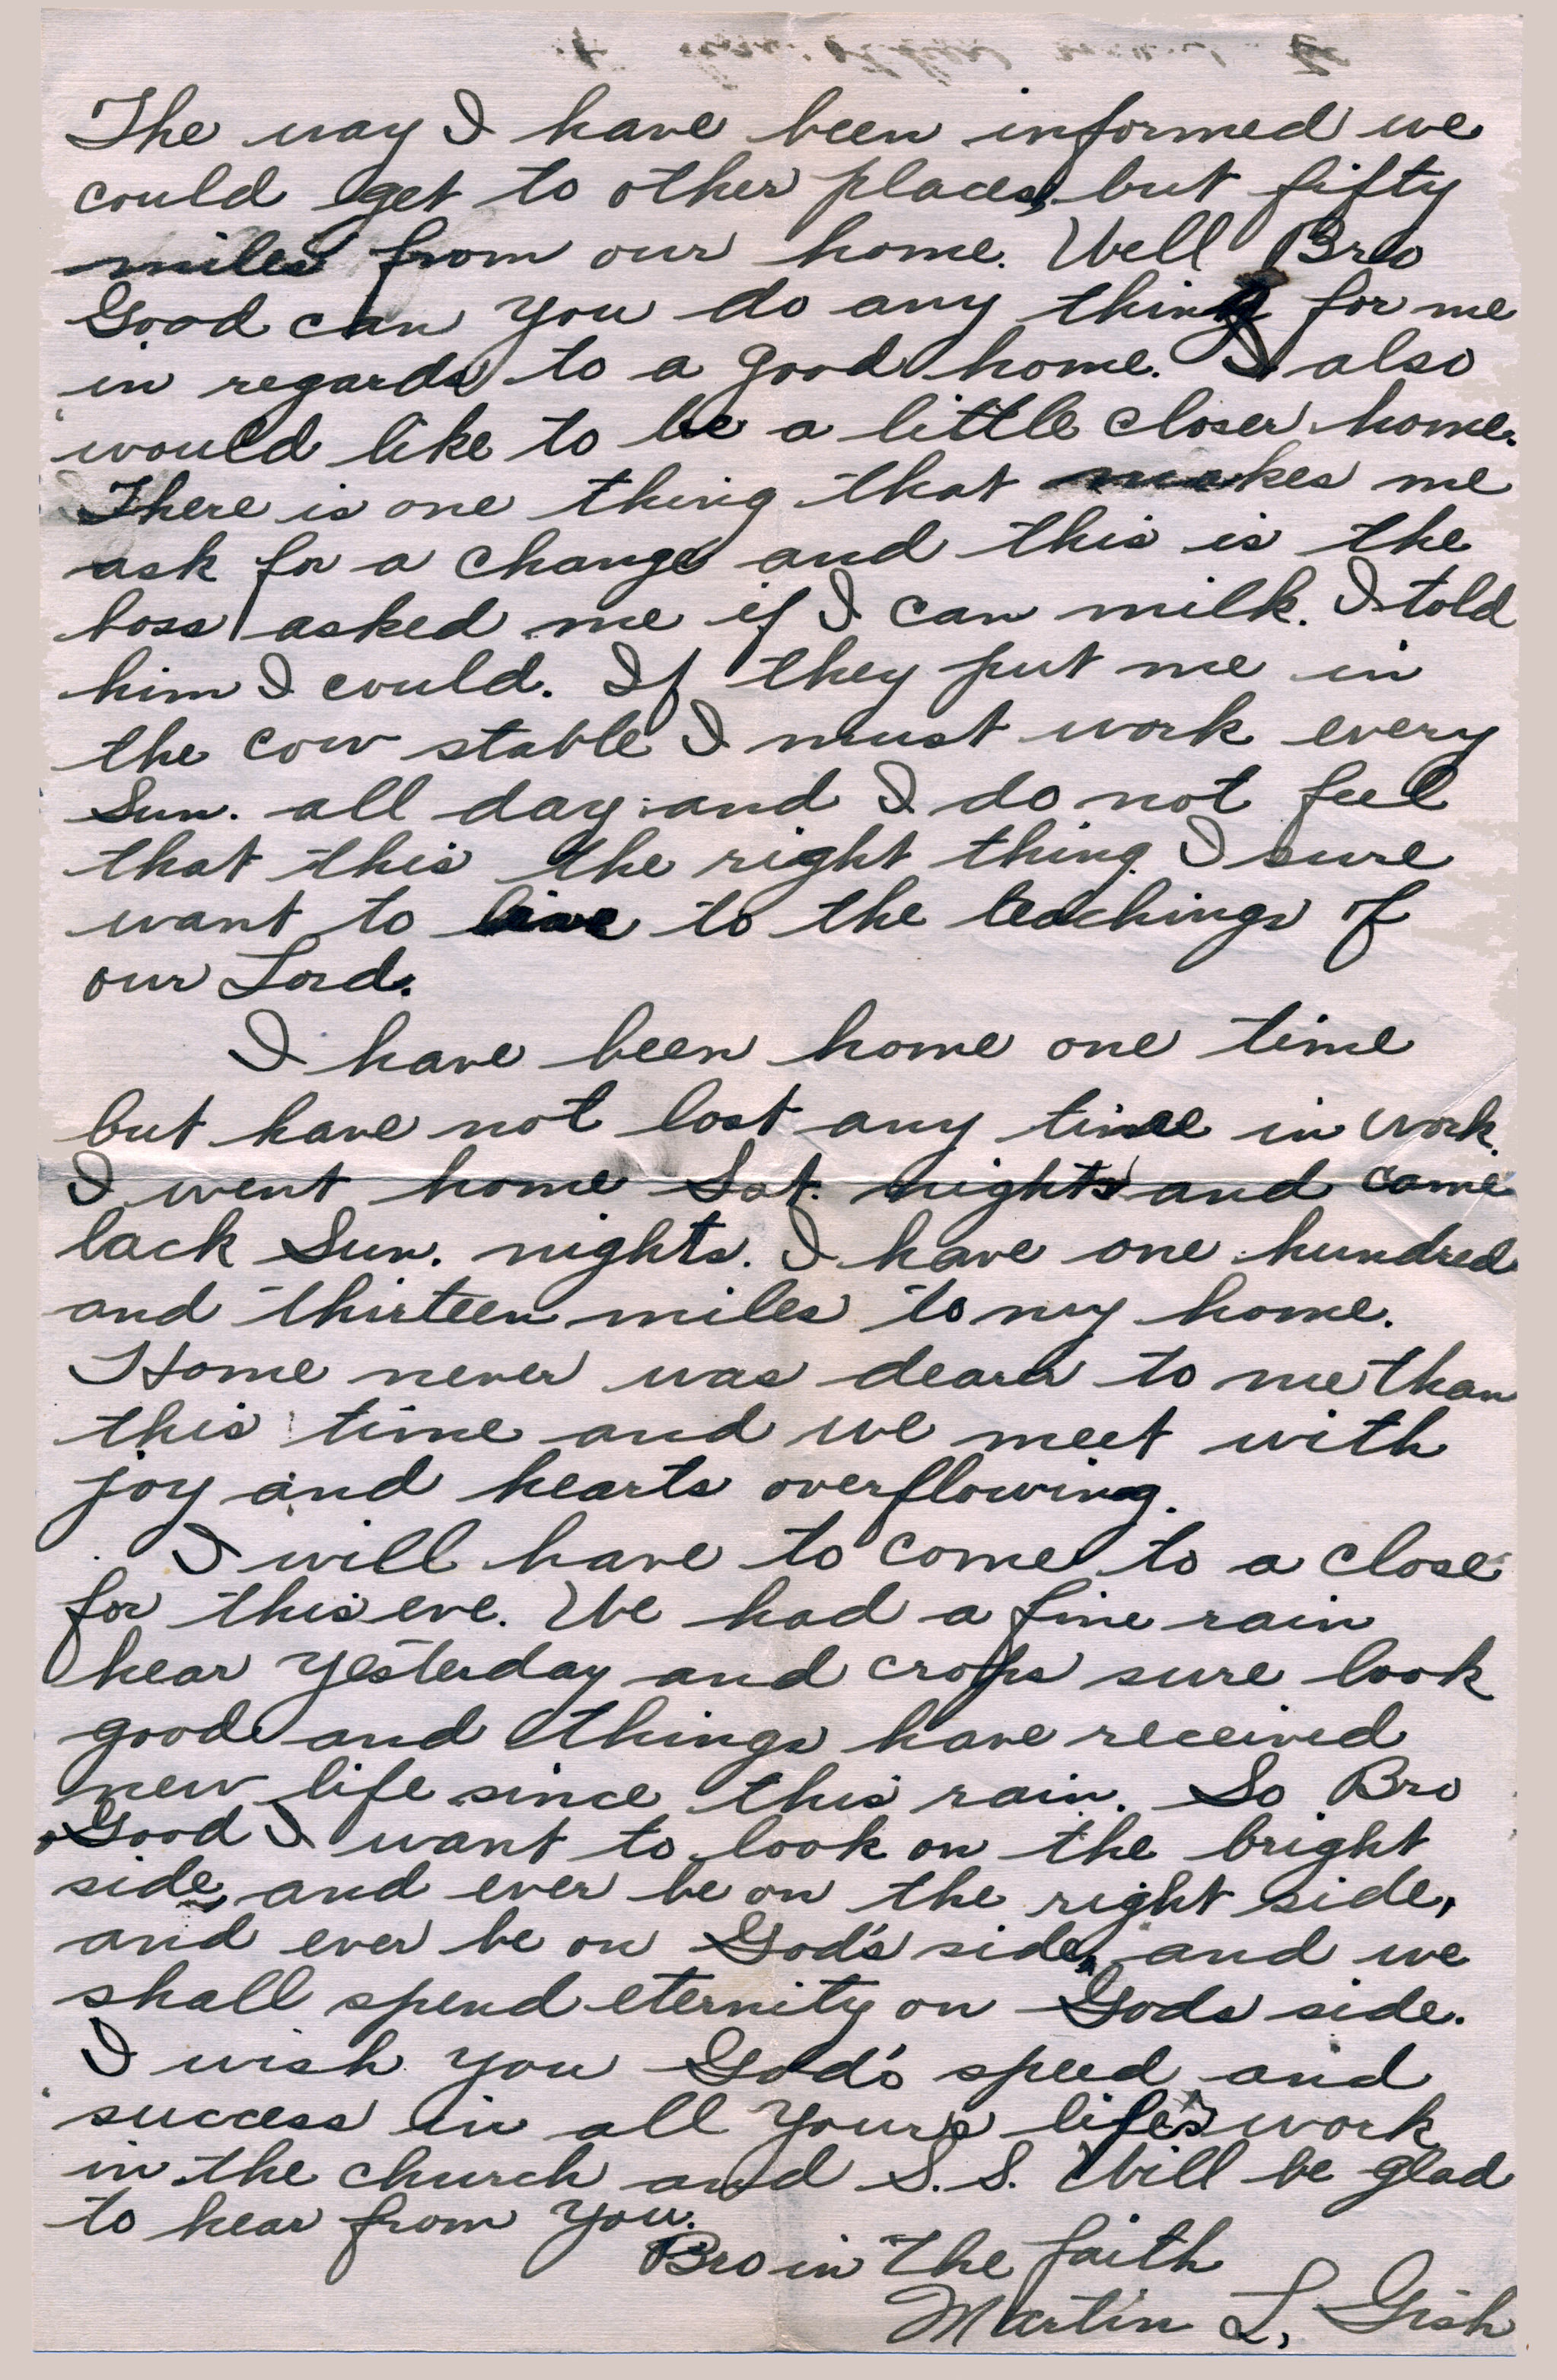 The way I have been informed we
could get to other places, but fifty
miles from our home. Well Bro
Good can you do any thing for me
in regards to a good home. I also
would like to be a little closer home.
There is one thing that makes me
ask for a change and this is the
boss asked me if I can milk. I told
him I could. If they put me in
the cow stable I must work every
Sun. all day and I do not feel
that this the right thing. I sure
want to live to the teachings of
our Lord.
I have been home one time
but have not lost any time in work.
I went home Sat. nights and came
back Sun. nights. I have one hundred
and thirteen miles to my home.
Home never was dearer to me than
this time and we meet with
joy and hearts overflowing.
I will have to come to a close
for this eve. We had a fine rain
hear yesterday and crops sure look
good and things have received
new life since this rain. So Bro
Good I want to look on the bright
side, and ever be on the right side,
and ever be on God's side, and we
shall spend eternity on Gods side.
I wish you God's speed and
success in all yours life's work
in the church and S.S. Will be glad
to hear from you.
Bro in the faith
Martin L. Gish